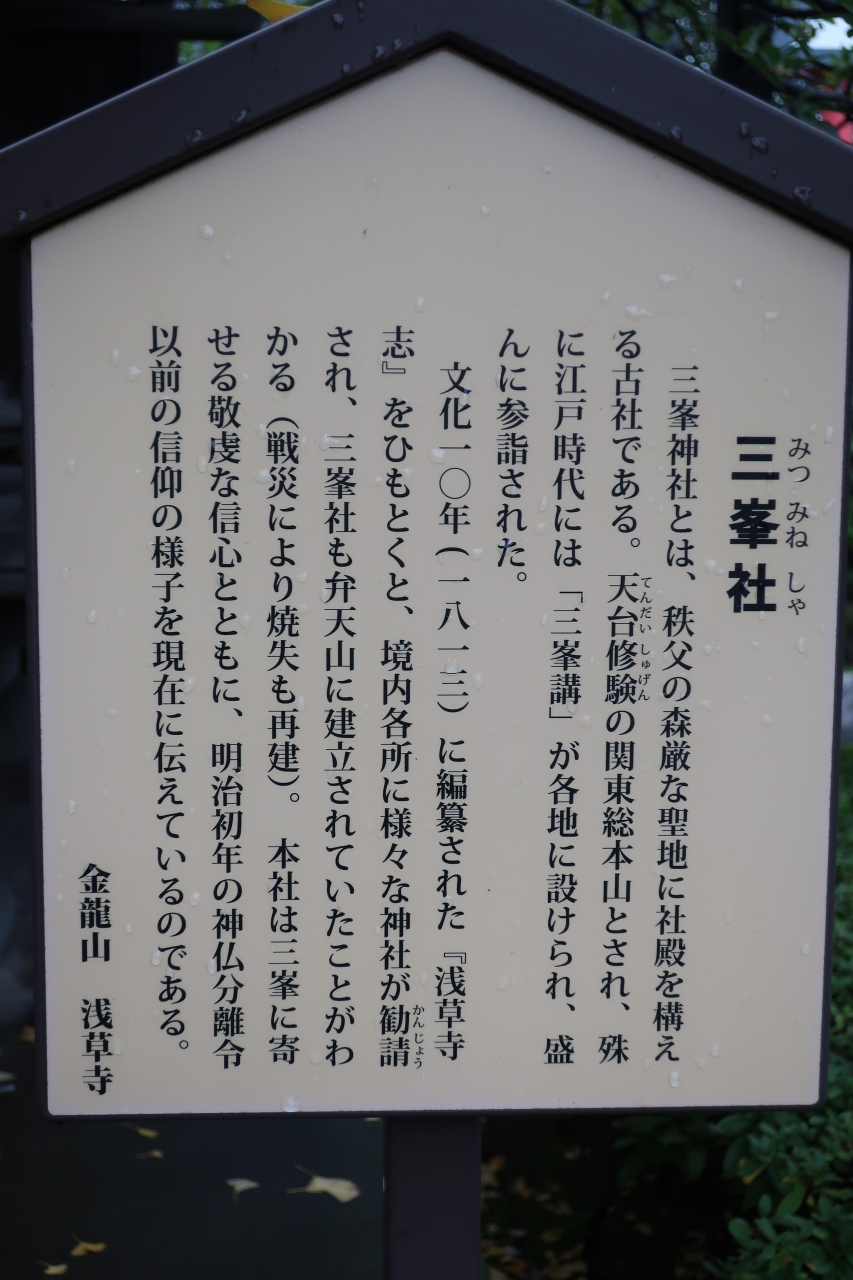 三峯社
みつ みね しゃ
三峯神社とは、秩父の森厳な聖地に社殿を構え
る古社である。天台修験の関東総本山とされ、殊
てんだい しゅげん
に江戸時代には「三峯講」が各地に設けられ、盛
んに参詣された。
文化一〇年(一八一三)に編纂された『浅草寺
志』をひもとくと、境内各所に様々な神社が勧請
かんじょう
され、三峯社も弁天山に建立されていたことがわ
かる(戦災により焼失も再建)。 本社は三峯に寄
せる敬虔な信心とともに、明治初年の神仏分離令
以前の信仰の様子を現在に伝えているのである。
金龍山 浅草寺